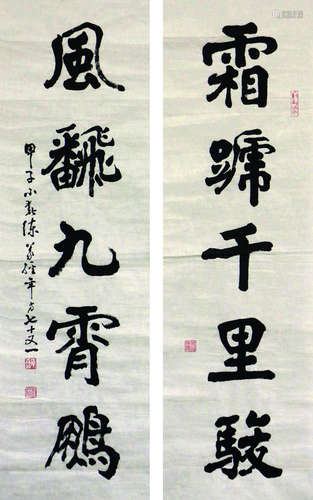 霜蹏千里駿
風飜九霄鵬
甲子小春陳年方七十又一